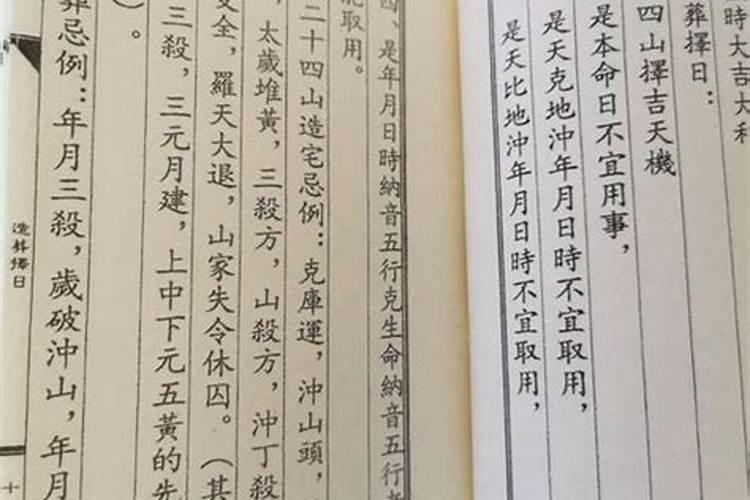 時大吉大利
葬擇日：
四山擇吉天機
是本命日不宜用事，
是天克地沖年月日時不宜取用，
是天比地沖年月日時不宜取用，
四、是年月日時納音五行克生命納音五行者
能取用。
二十四山造宅忌例：克庫運，沖山頭，
，太歲堆黃，三殺方，山殺方，沖丁殺
全，羅天大退，山家失令休囚。（其
三殺，三元月建，上中下元五黃的先
）。
葬忌例：年月三殺，歲破沖山，年月
造葬擇日
十